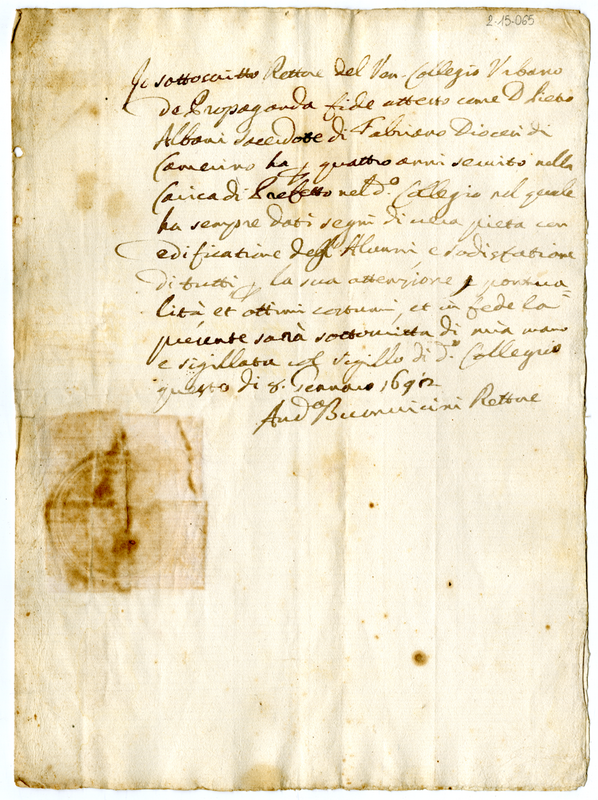 2-15-065
Io sottoscritto Rettore del Ven. Collegio Urbano
de Propaganda fide attesto come D. Pietro
Albani sacerdote di Fabriano Diocesi di
Camerino ha p quattro anni servito nella
Carica di Prefetto nel d.º Collegio nel quale
ha sempre dati segni di vera pietà con
edificatione degl' Alunni e sodisfatione
di tutti p la sua attenzione, e pontua=
lità et ottimi costumi, et in fede la
presente sarà sottoscritta di mia mano
e sigillata col sigillo di d.º Collegio
questo di 8. Gennaro 1692
And.ª Rettore